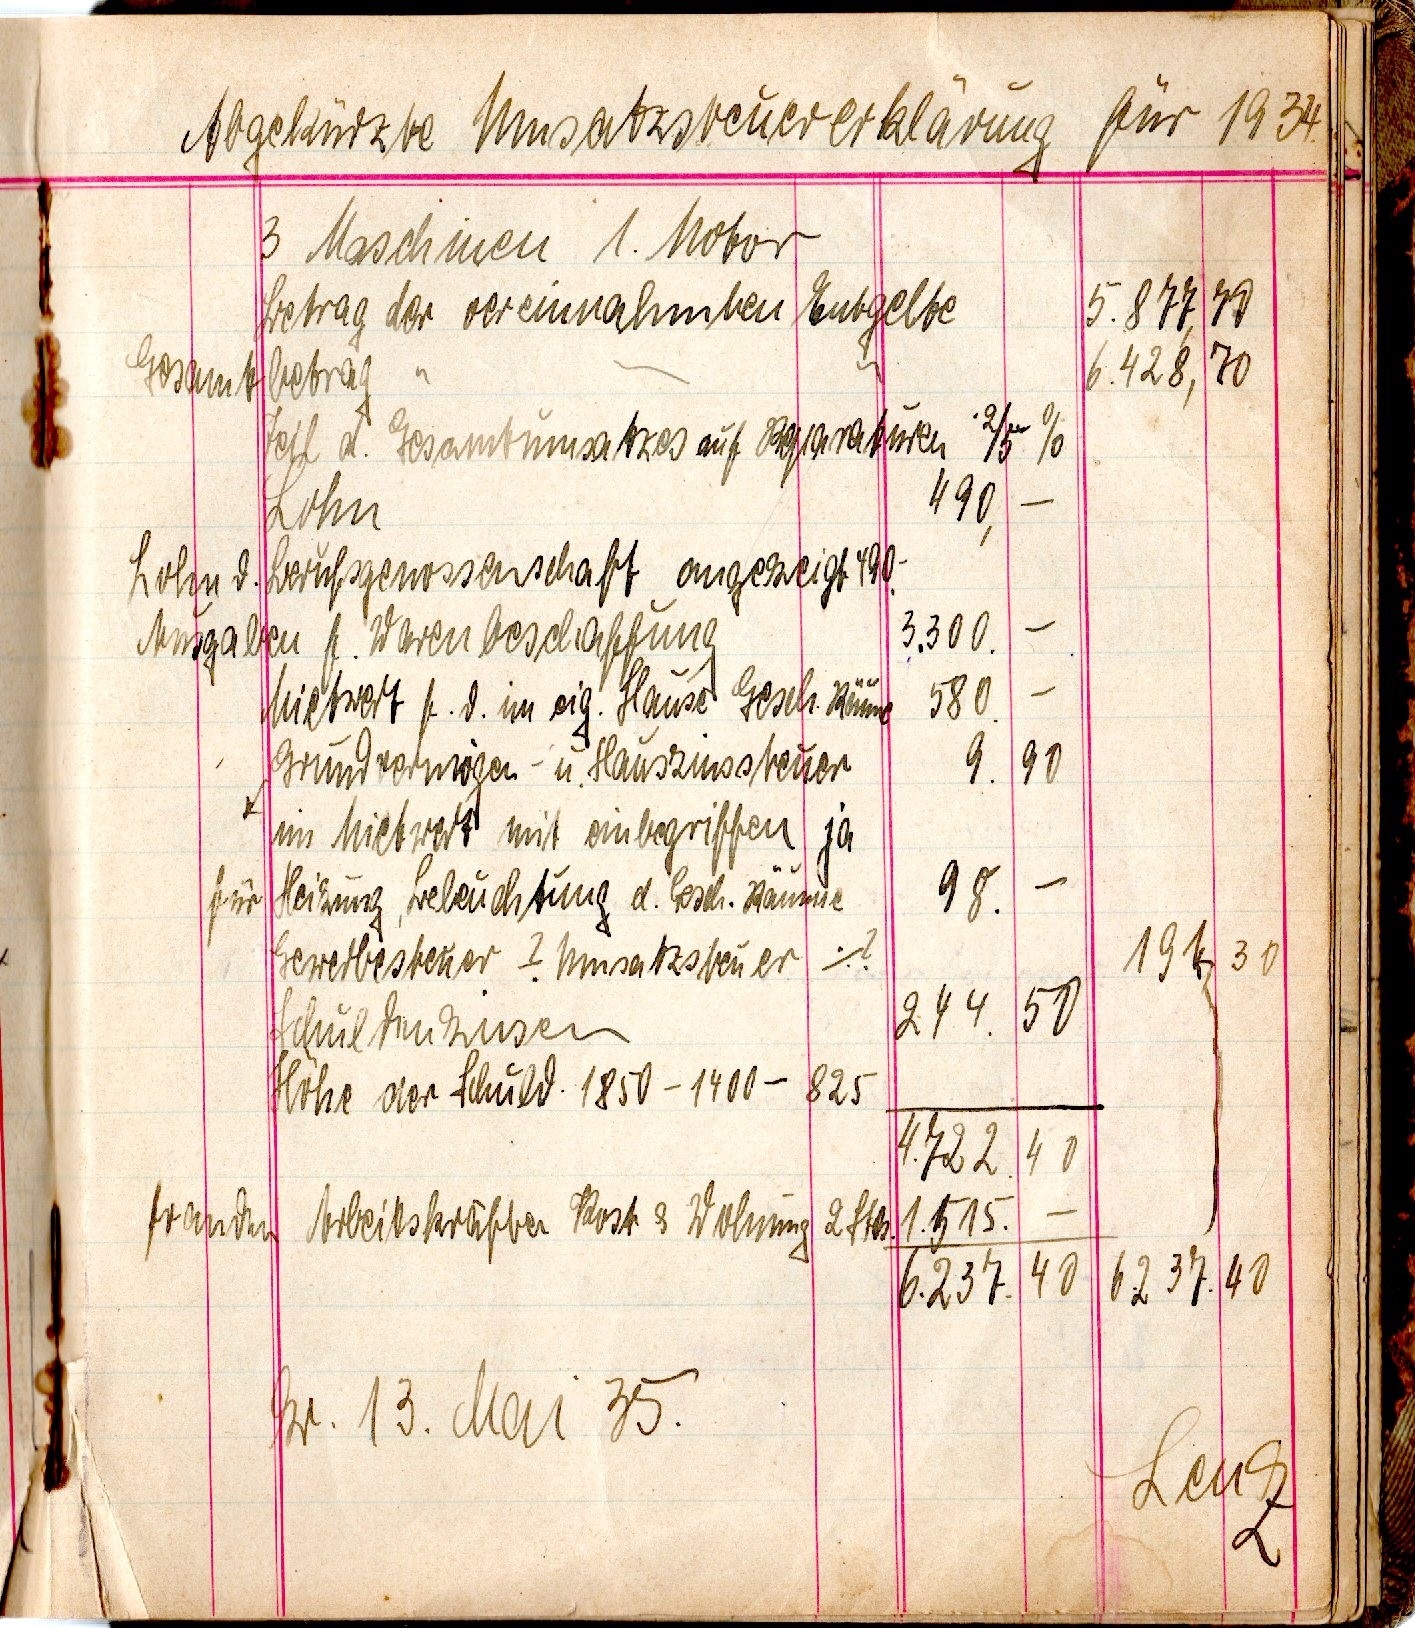 Abgekürzte Umsatzsteuererklärung für 1934.
3 Maschinen 1. Motor
Betrag der vereinnahmten Entgelte 5.877,70
Gesamt betrag " — " 6.428,70
Teil d. Gesamtumsatzes auf Reparaturen 2/5 %
Lohn 490, —
Lohn d. Berufsgenossenschaft angezeigt 490.-
Ausgaben f. Warenbeschaffung 3.300. —
Mietwert f. d. im eig. Hause Gesch. Räume 580. —
Grundvermögen- u. Hauszinssteuer 9. 90
im Mietwert mit einbegriffen ja
für Heizung, Beleuchtung d. Gesch. Räume 98. —
Gewerbesteuer ? Umsatzsteuer ? 191, 30
Schuldenzinsen 244. 50
Höhe der Schuld. 1850 - 1400 - 825
4.722. 40
fremden Arbeitskräfte Kost & Wohnung 2 1.515. —
6.237. 40 6237. 40
13. Mai 35.
Lenz